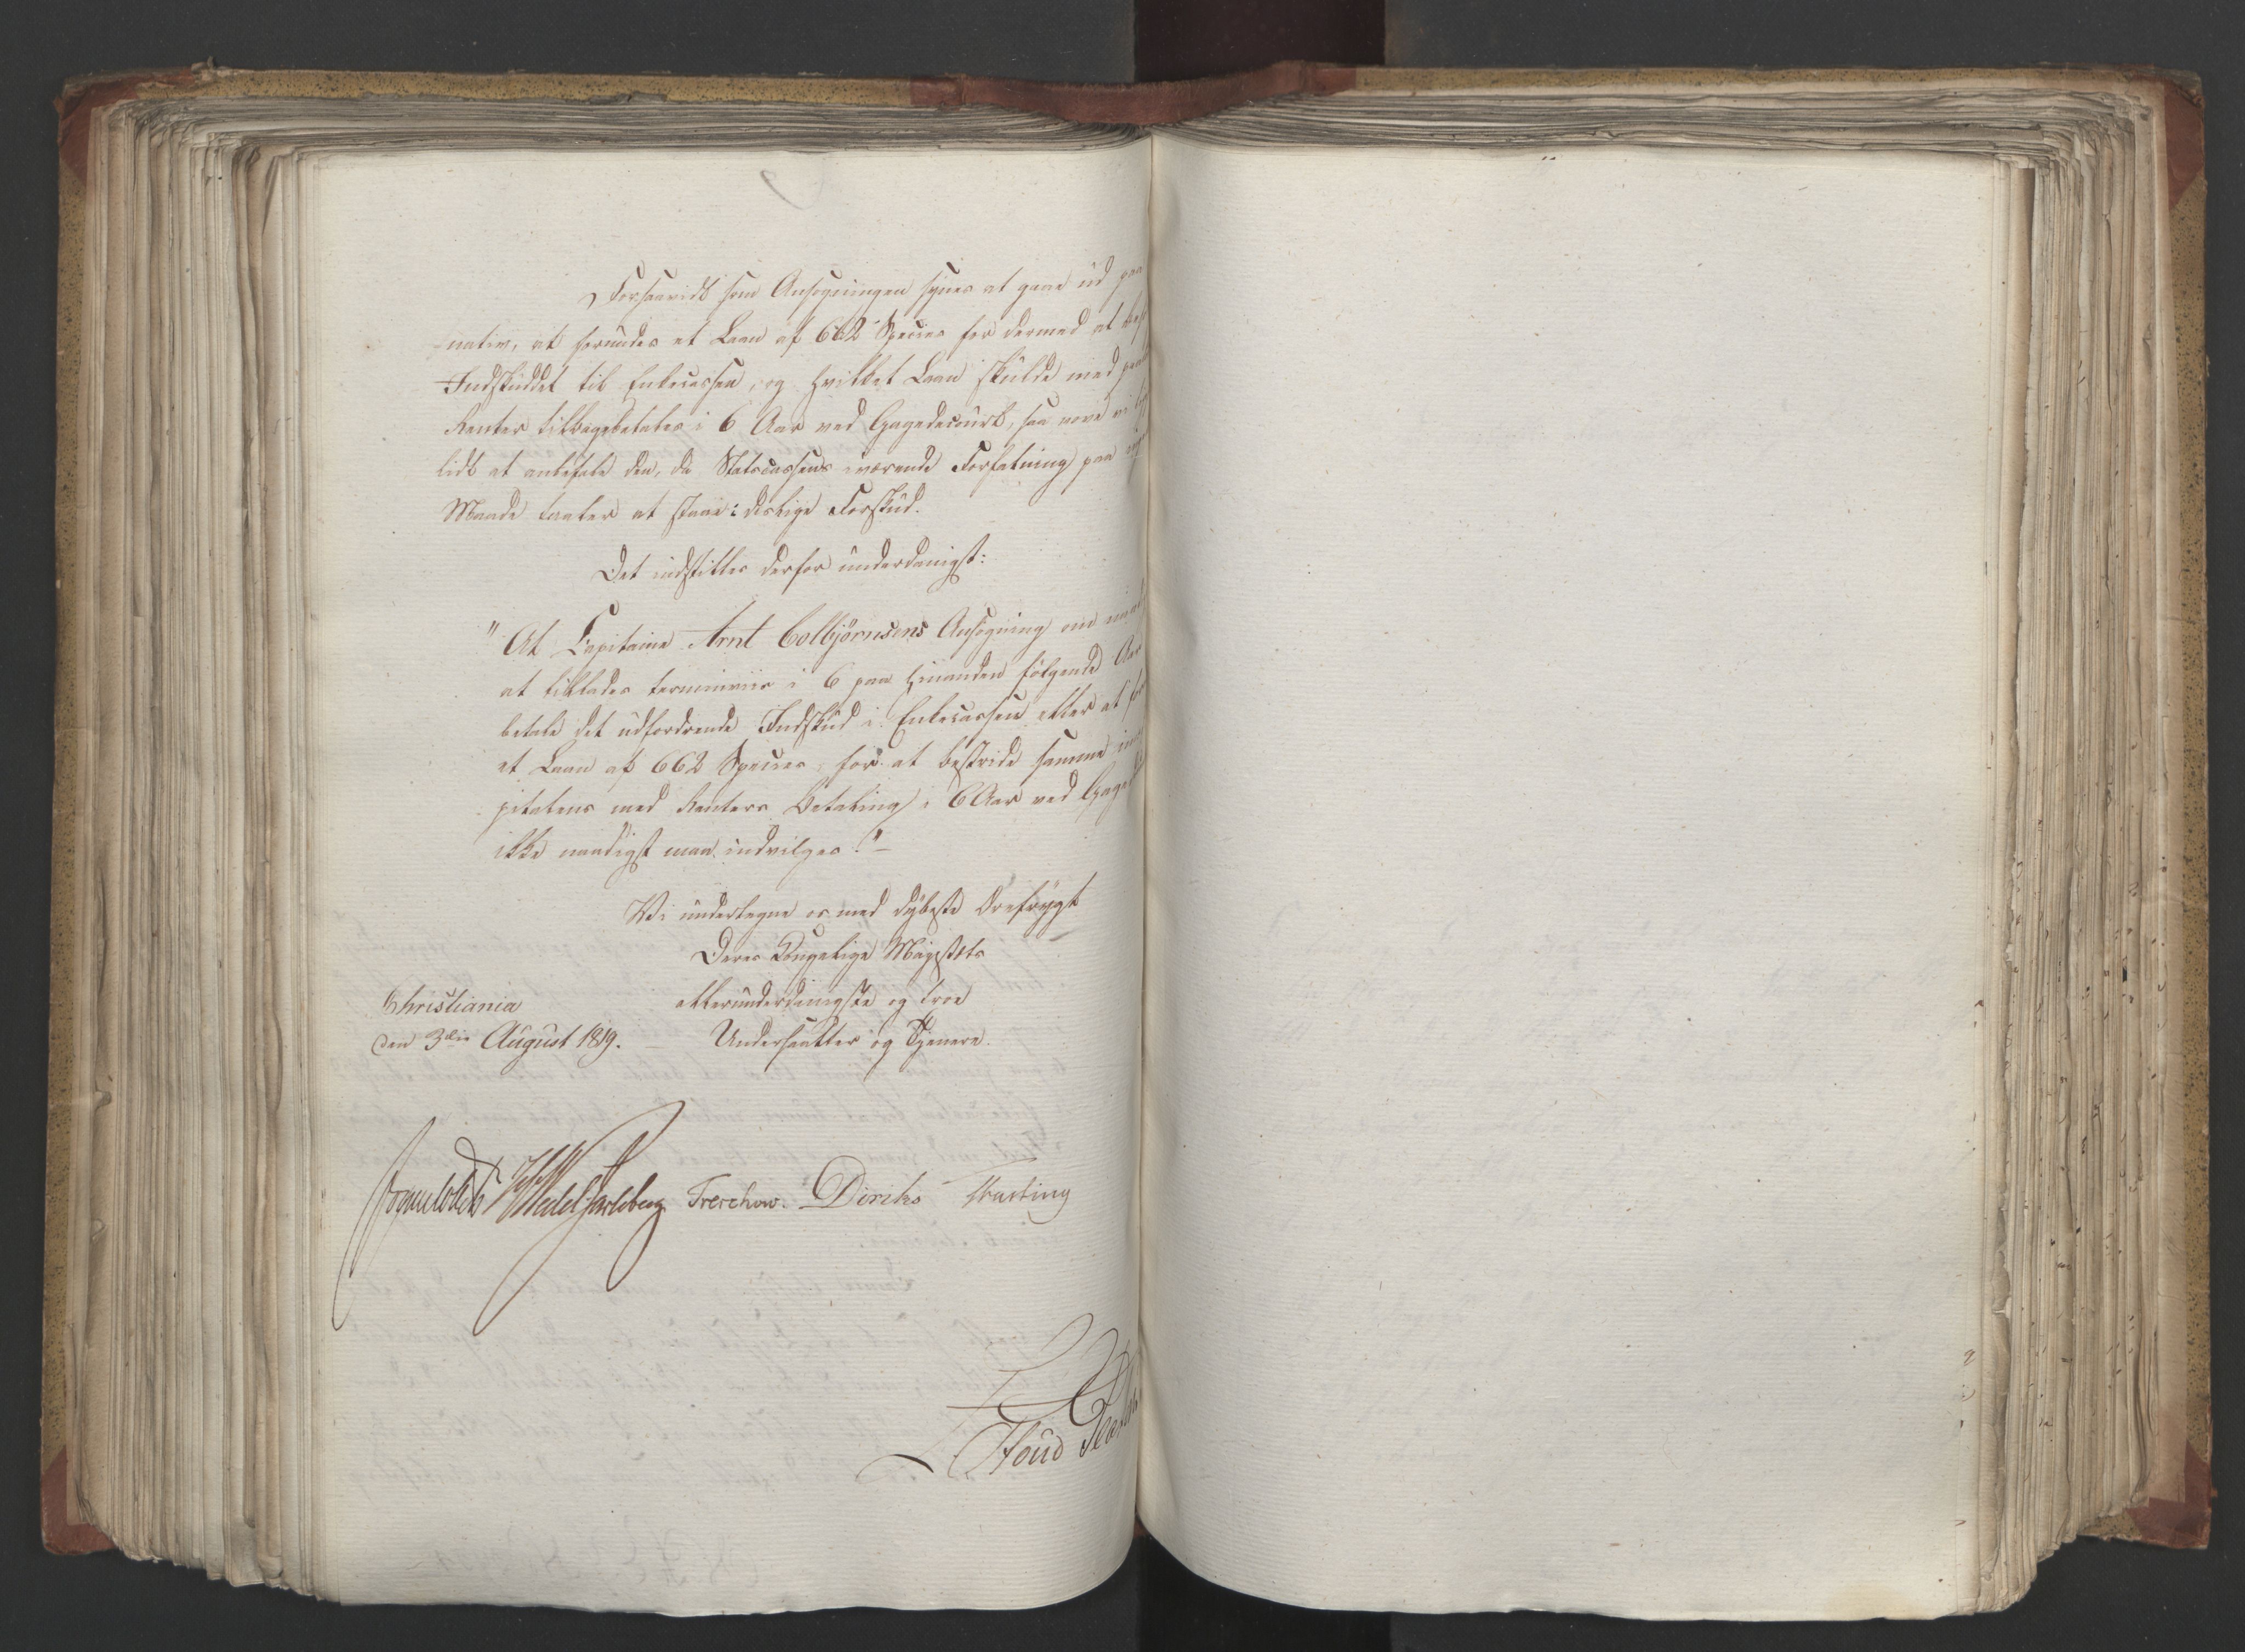 Forsaavidt som Ansøgningen synes at gaae ud paa
nativ, at forundes et Laan af 662 Species for dermed at
Indskuddet til Enkecassen, og hvilket Laan skulde med
Renter tilbagebetales i 6 Aar ved Gagedecourt, saa vove vi
lidt at anbefale den, da Statscassens nærværende Forfatning paa ingen
Maade taaler at staae i deslige Forskud.
Det indstilles derfor underdanigst:
"At Capitaine Arnt Colbjørnsens Ansøgning om
at tillades terminviis i 6 paa hinanden følgende Aar
betale det udfordrende Indskud i Enkecassen eller at
et Laan af 662 Species for at bestride samme
pitalens med Renters Betaling i 6 Aar ved Gage
ikke naadigst maa indvilges."
Vi undertegne os med dybeste Ærefrygt
Deres Kongelige Majestets
allerunderdanigste og troe
Undersaatter og Tjenere.
Christiania
den 3die August 1819.
Sommerhielm Wedel Jarlsberg Treschow. Diriks Fasting